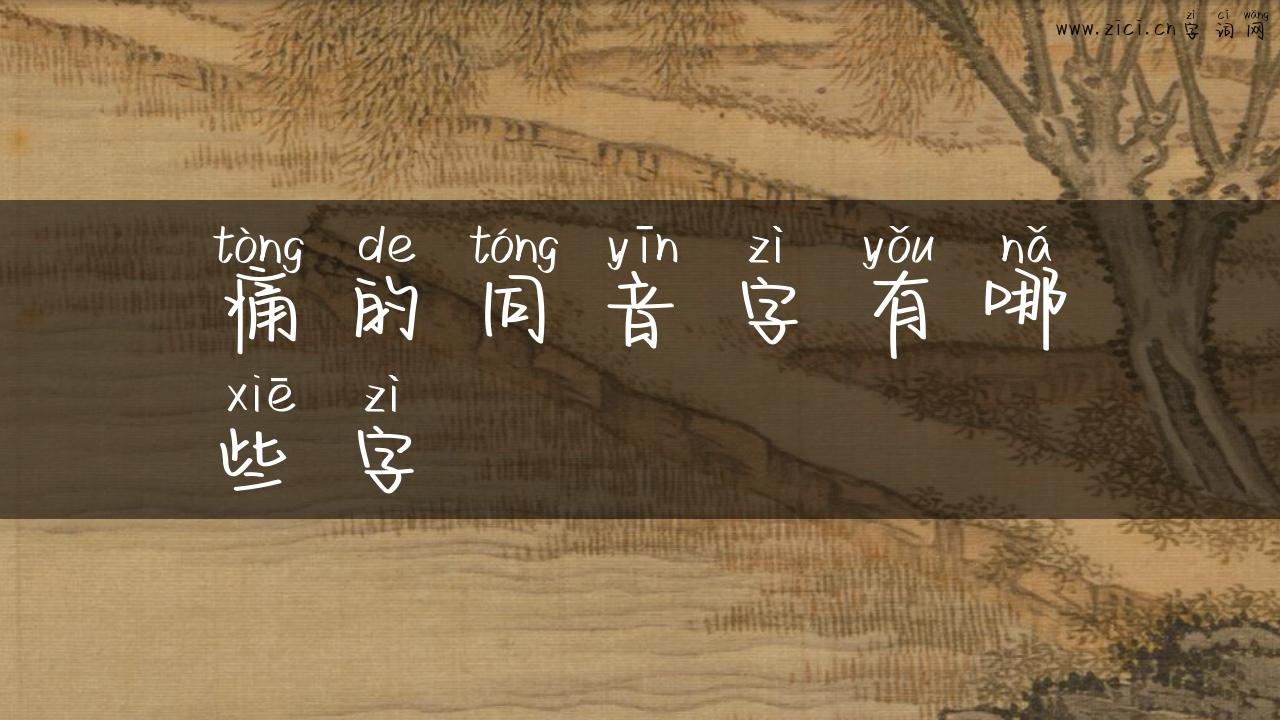 zì cí wǎng
www.zici.cn字词网
tòng de tóng yīn zì yǒu nǎ
痛的同音字有哪
xiē zì
些字